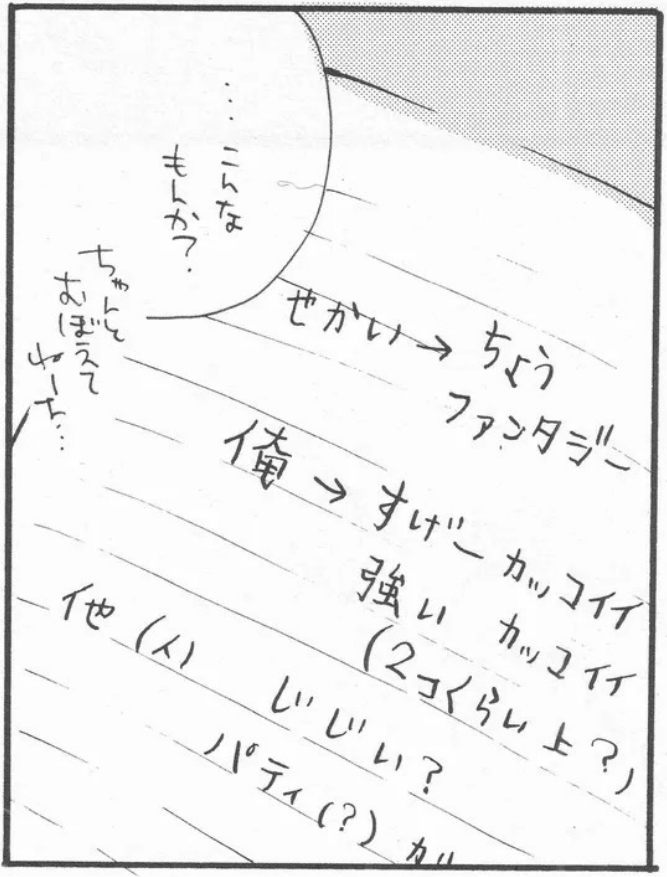 …こんな
もんか?
ちゃんと
おぼえて
ねーち…
せかい→ちょう
ファンタジー
俺→すげーカッコイイ
強い カッコイイ
(2コくらい上?)
他(人) じじい?
パティ(?)が